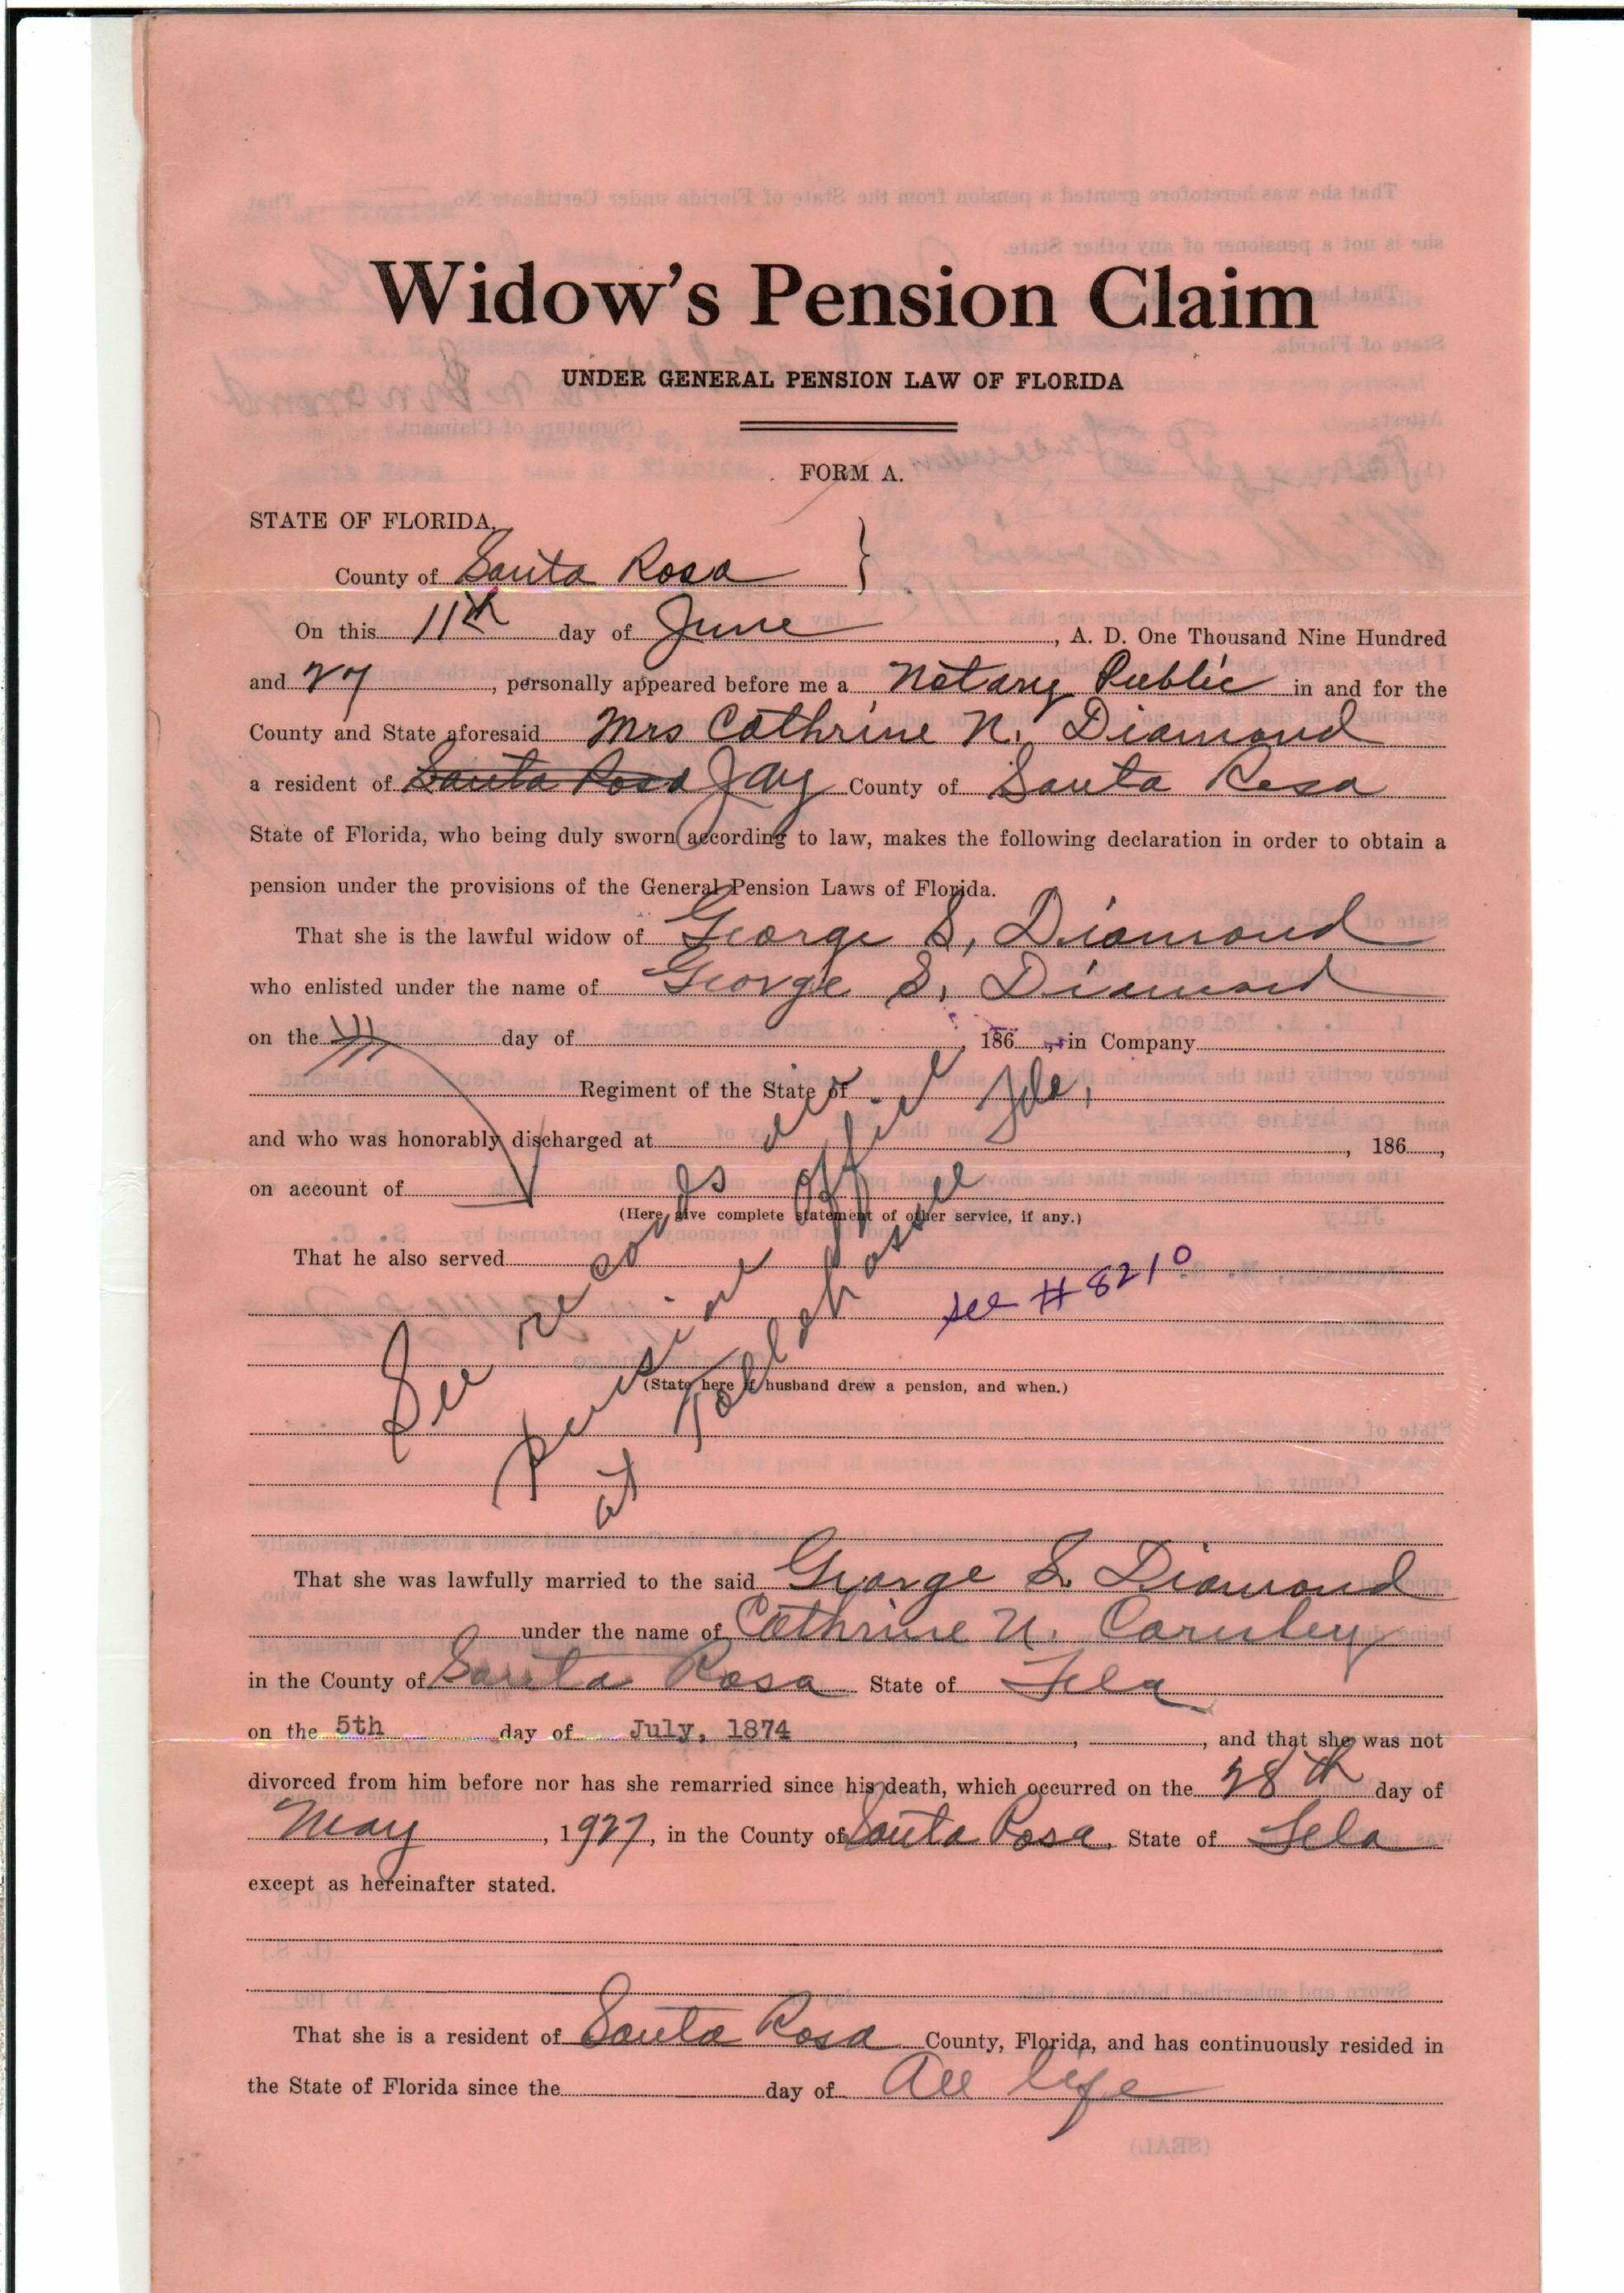 Widow's Pension Claim
UNDER GENERAL PENSION LAW OF FLORIDA
FORM A.
STATE OF FLORIDA,
County of Santa Rosa }
On this 11th day of June, A. D. One Thousand Nine Hundred
and 27, personally appeared before me a Notary Public in and for the
County and State aforesaid Mrs Cathrine N. Diamond
a resident of Santa Rosa Jay County of Santa Rosa
State of Florida, who being duly sworn according to law, makes the following declaration in order to obtain a
pension under the provisions of the General Pension Laws of Florida.
That she is the lawful widow of George S. Diamond
who enlisted under the name of George S. Diamond
on the day of , 186 , in Company
Regiment of the State of Fla,
and who was honorably discharged at , 186 ,
on account of
(Here give complete statement of other service, if any.)
That he also served
See records
pension office Fla,
at Tallahassee
see # 8210
(State here if husband drew a pension, and when.)
That she was lawfully married to the said George S. Diamond
under the name of Cathrine N. Carnley
in the County of Santa Rosa State of Fla
on the 5th day of July, 1874 , , and that she was not
divorced from him before nor has she remarried since his death, which occurred on the 28th day of
May , 1927, in the County of Santa Rosa, State of Fla
except as hereinafter stated.
That she is a resident of Santa Rosa County, Florida, and has continuously resided in
the State of Florida since the day of All life